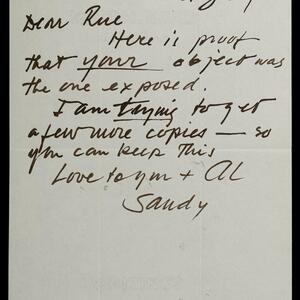 Dear Rue
Here is proof
that your object was
the one exposed.
I am trying to get
a few more copies — so
you can keep this
Love to you + AL
Sandy